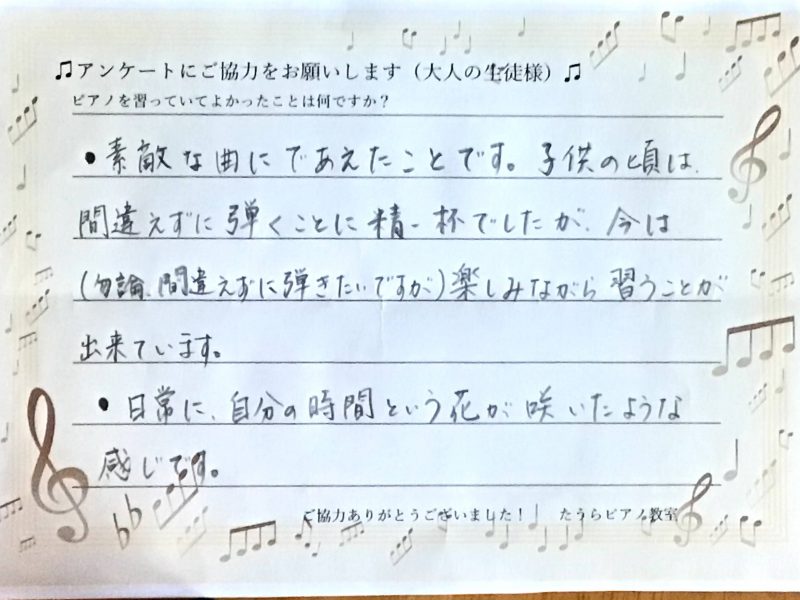 ♫アンケートにご協力をお願いします（大人の生徒様）♫
ピアノを習っていてよかったことは何ですか？
●素敵な曲にであえたことです。子供の頃は、
間違えずに弾くことに精一杯でしたが、今は
(勿論、間違えずに弾きたいですが)楽しみながら習うことが
出来ています。
●日常に、自分の時間という花が咲いたような
感じです。
ご協力ありがとうございました！　たうらピアノ教室